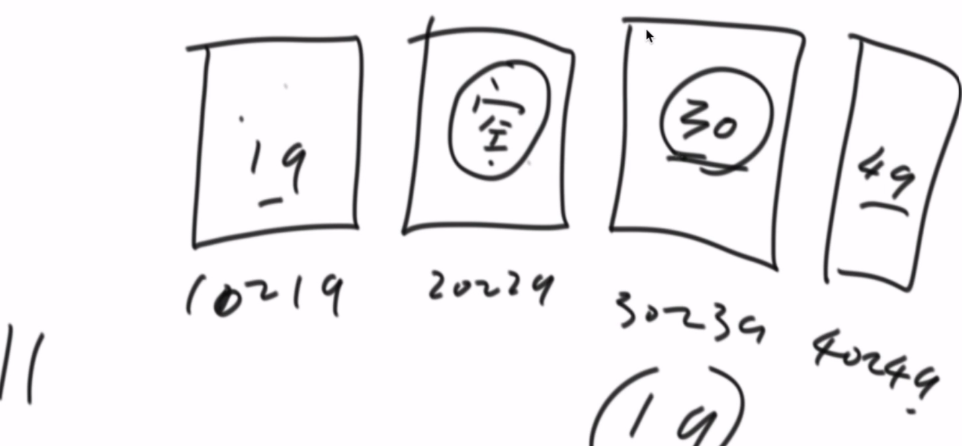 19
空
30
49
10~19
20~29
30~39
40~49
11
19